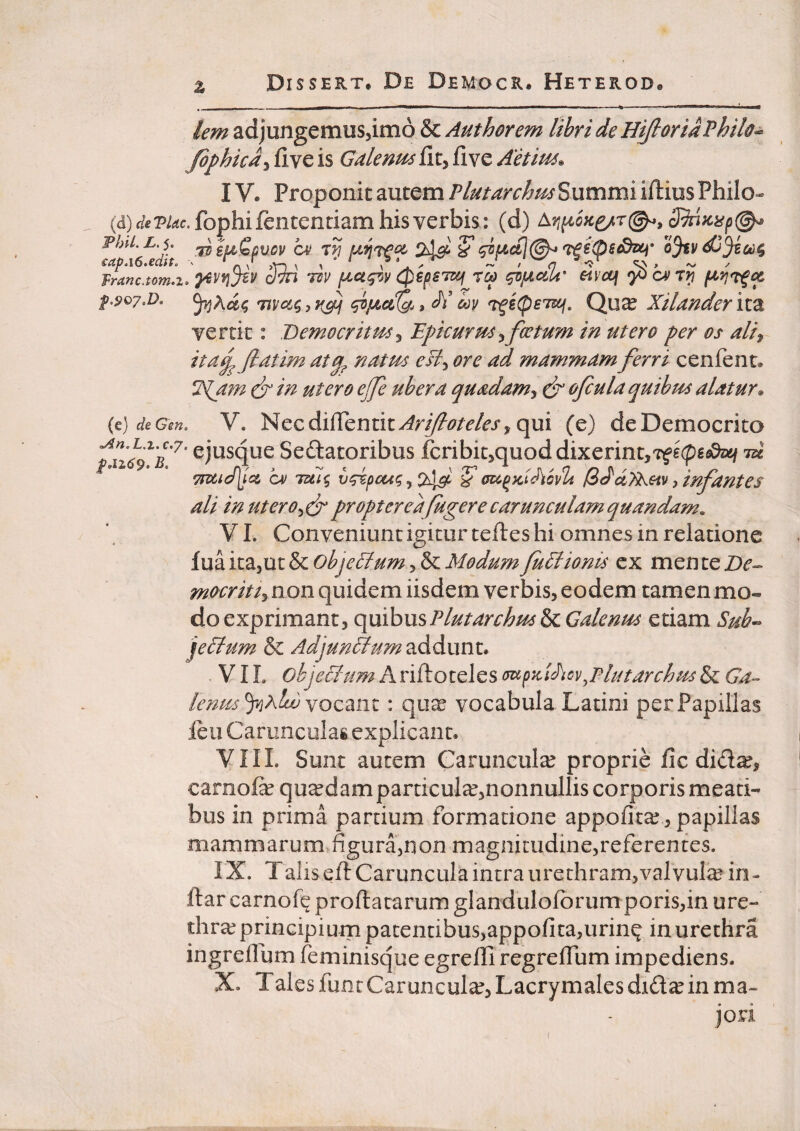 2 DISSERT. DE DEMOCR. HETEROD.
lem adjungemus,imò & Authorem libri de Historiâ Philo-
sophicâ, sive is Galenus sit, sive Aëtius.
IV. Proponit autem Plutarchus Summi istius Philo-
(d) de Plac. sophi sententiam his verbis: (d) Δημόκρλτ@, Ἐπίκυρ@
Phil. L. 5. τὸ ἔμβρυον ἐν τῇ μήτρᾳ διὰ τȣ͂ στόματ@ τρέφεσθαι· ὅθεν εὐθέως
cap.16.edit.
Franc.tom.2. γεννηθὲν ἐπὶ τὸν μαστὸν φέρεται τῷ στόματι· εἶναι γὸ ἐν τῇ μήτρᾳ
p.907.D. θηλάς τινας, καὶ στόματα, δι᾽ ὧν τρέφεται. Quæ Xilander ita
vertit: Democritus, Epicurus, fœtum in utero per os ali,
itaq; statim atq; natus est, ore ad mammam ferri censent.
Nam & in utero esse ubera quædam, & oscula quibus alatur.
(e) de Gen. V. Nec dissentit Aristoteles, qui (e) de Democrito
An.L.2.c.7. ejusque Sectatoribus scribit,quod dixerint,τρέφεσθαι τὰ
p.1269.B.
παιδία ἐν ταῖς ὑστέραις, διὰ τȣ͂ σαρκίδιόντι βδάλλειν, infantes
ali in utero,& propterea fugere carunculam quandam.
VI. Conveniunt igitur testes hi omnes in relatione
suâ ita,ut & Objectum, & Modum suctionis ex mente De-
mocriti, non quidem iisdem verbis, eodem tamen mo-
do exprimant, quibus Plutarchus & Galenus etiam Sub-
jectum & Adjunctum addunt.
VII. Objectum Aristoteles σαρκίδιον,Plutarchus & Ga-
lenus θηλὼ vocant: quæ vocabula Latini per Papillas
seu Carunculas explicant.
VIII. Sunt autem Carunculæ propriè sic dictæ,
carnosæ quædam particulæ,nonnullis corporis meati-
bus in primâ partium formatione appositæ, papillas
mammarum figurâ,non magnitudine,referentes.
IX. Talis est Caruncula intra urethram,valvulæ in-
star carnosę prostatarum glandulosorum poris,in ure-
thræ principium patentibus,apposita,urinę in urethrâ
ingressum seminisque egressi regressum impediens.
X. Tales sunt Carunculæ, Lacrymales dictæ in ma-
jori